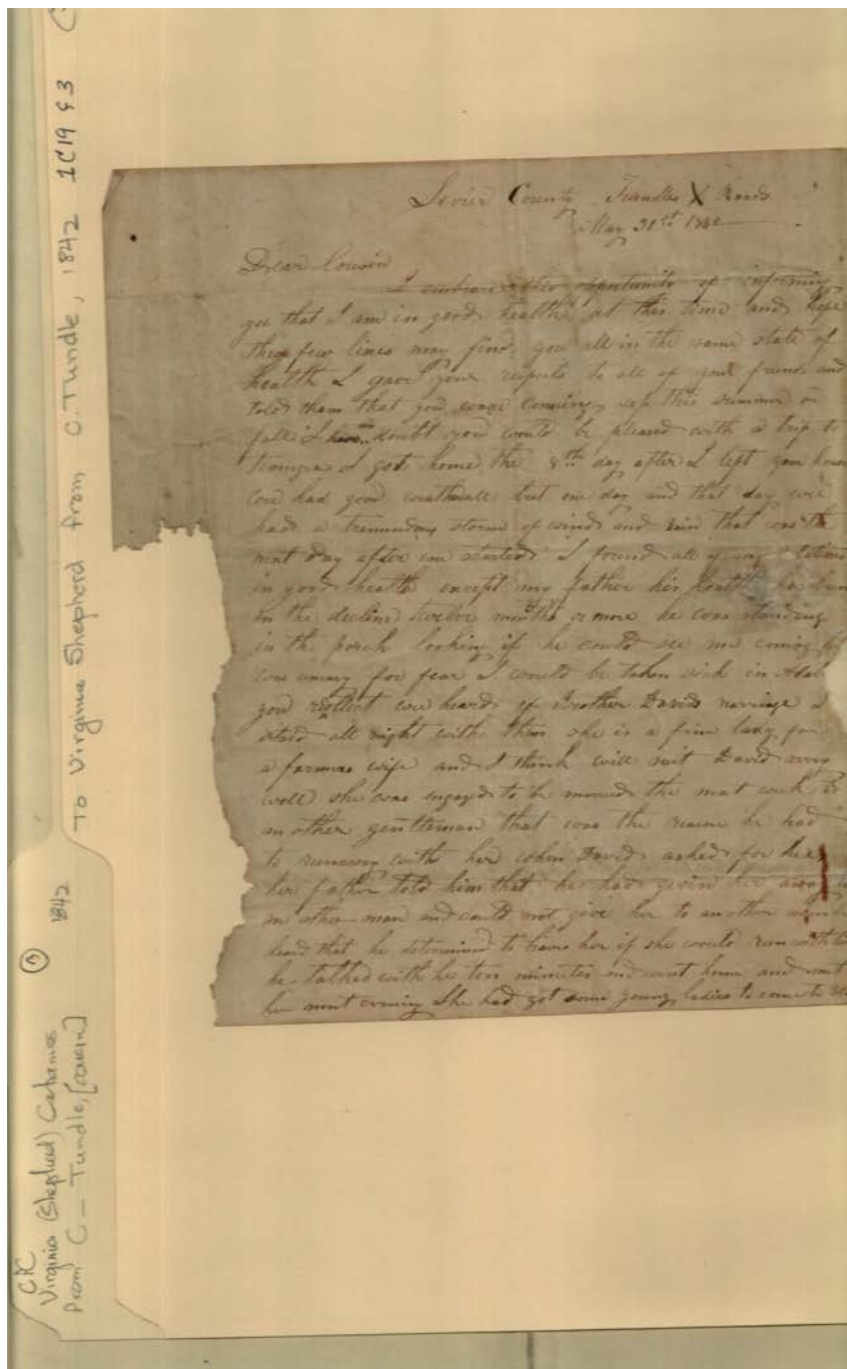 To Virginia Shepherd from C. Tundle, 1842 1C19 § 3
CPC
Virginia (Shepherd) Cabaniss 1842
from C — Tundle, [cousin]
Sevier County Trundles X Roads
May 31st
Dear Cousin
I embrace opportunity of informing
you that I am in good health at this time and hope
These few lines may find you all in the same state of
health I gave your respects to all of your friends and
told them that you ware comming up this summer or
fall I have no doubt you would be pleased with a trip to
I got home the 8th day after I left your house
wee had good but one day and that day wee
had a storm of wind and rain that was the
next day after we started I found all of my relations
in good health except my father his health has been
on the decline twelve months or more he was standing
in the porch looking if he could see me coming he
was uneasy for fear I would be taken sick in
you recollect wee heard of Brother Davids marriage I
staid all night with them she is a fine lady for
a farmers wife and I think will suit David very
well she was engaged to be married the next week to
another gentleman that was the reason he had
to runaway with her when David asked for her
her father told him that he had given her away to
an other man and could not give her to another
heard that he determined to have her if she would run with him
he talked with her ten minutes and went home and went
next evening She had got some young ladies to come to